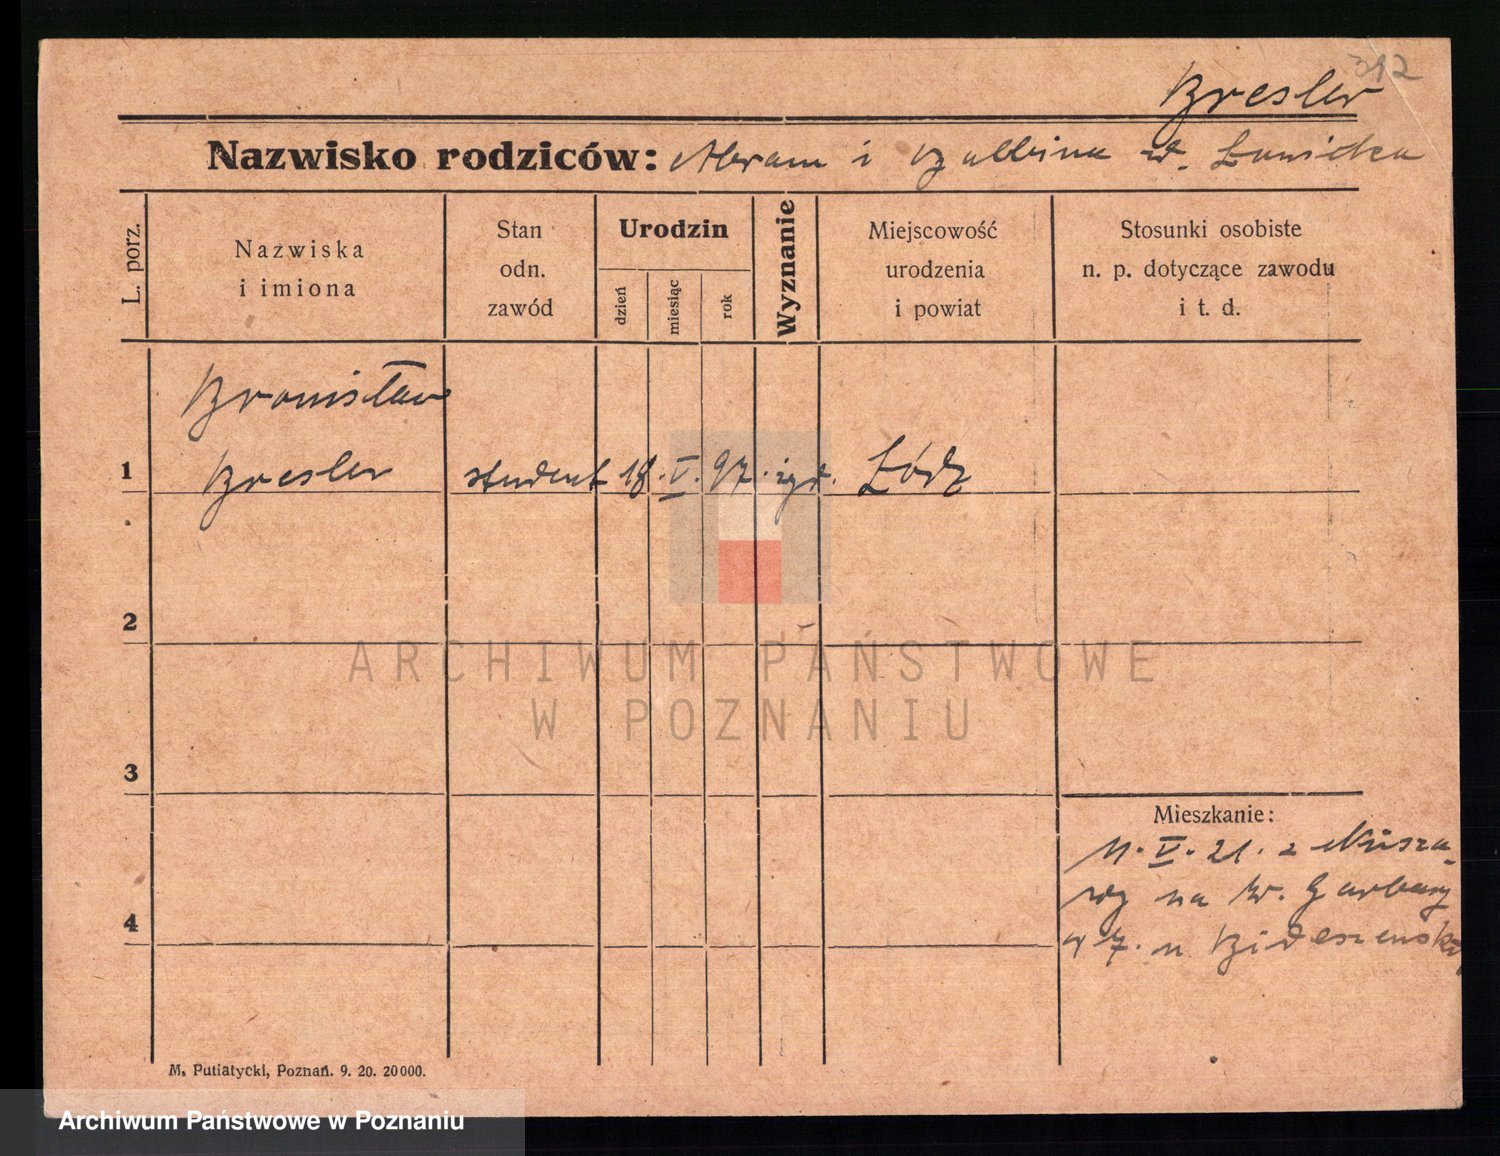 312
Bresler
Nazwisko rodziców: Abram i Balbina d. Lanicka
L. porz.
Nazwiska
i imiona
Stan
odn.
zawód
Urodzin
dzień
miesiąc
rok
Wyznanie
Miejscowość
urodzenia
i powiat
Stosunki osobiste
n. p. dotyczące zawodu
i t. d.
Bronisław
1 Bresler student 18. V. 97. żyd. Łódź
2
3
4
Mieszkanie:
11. V. 21. z
na W. Garbary
47. u
M. Putiatycki, Poznań. 9. 20. 20000.
ARCHIWUM PAŃSTWOWE
W POZNANIU
Archiwum Państwowe w Poznaniu